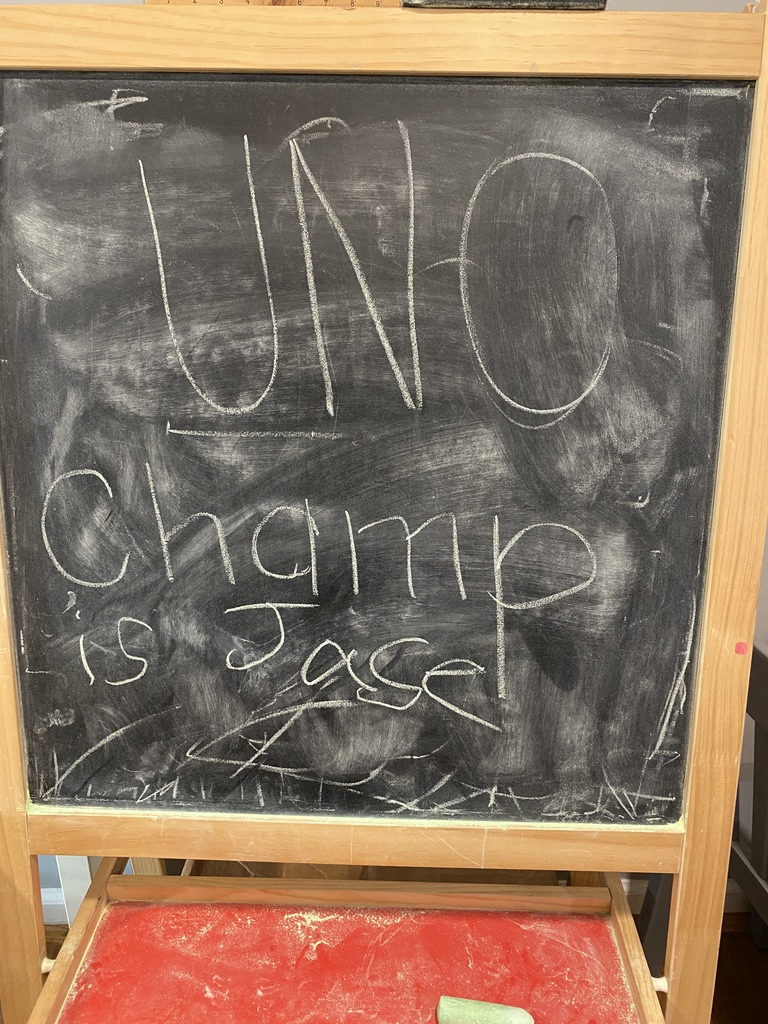 UNO
Champ
is Jase